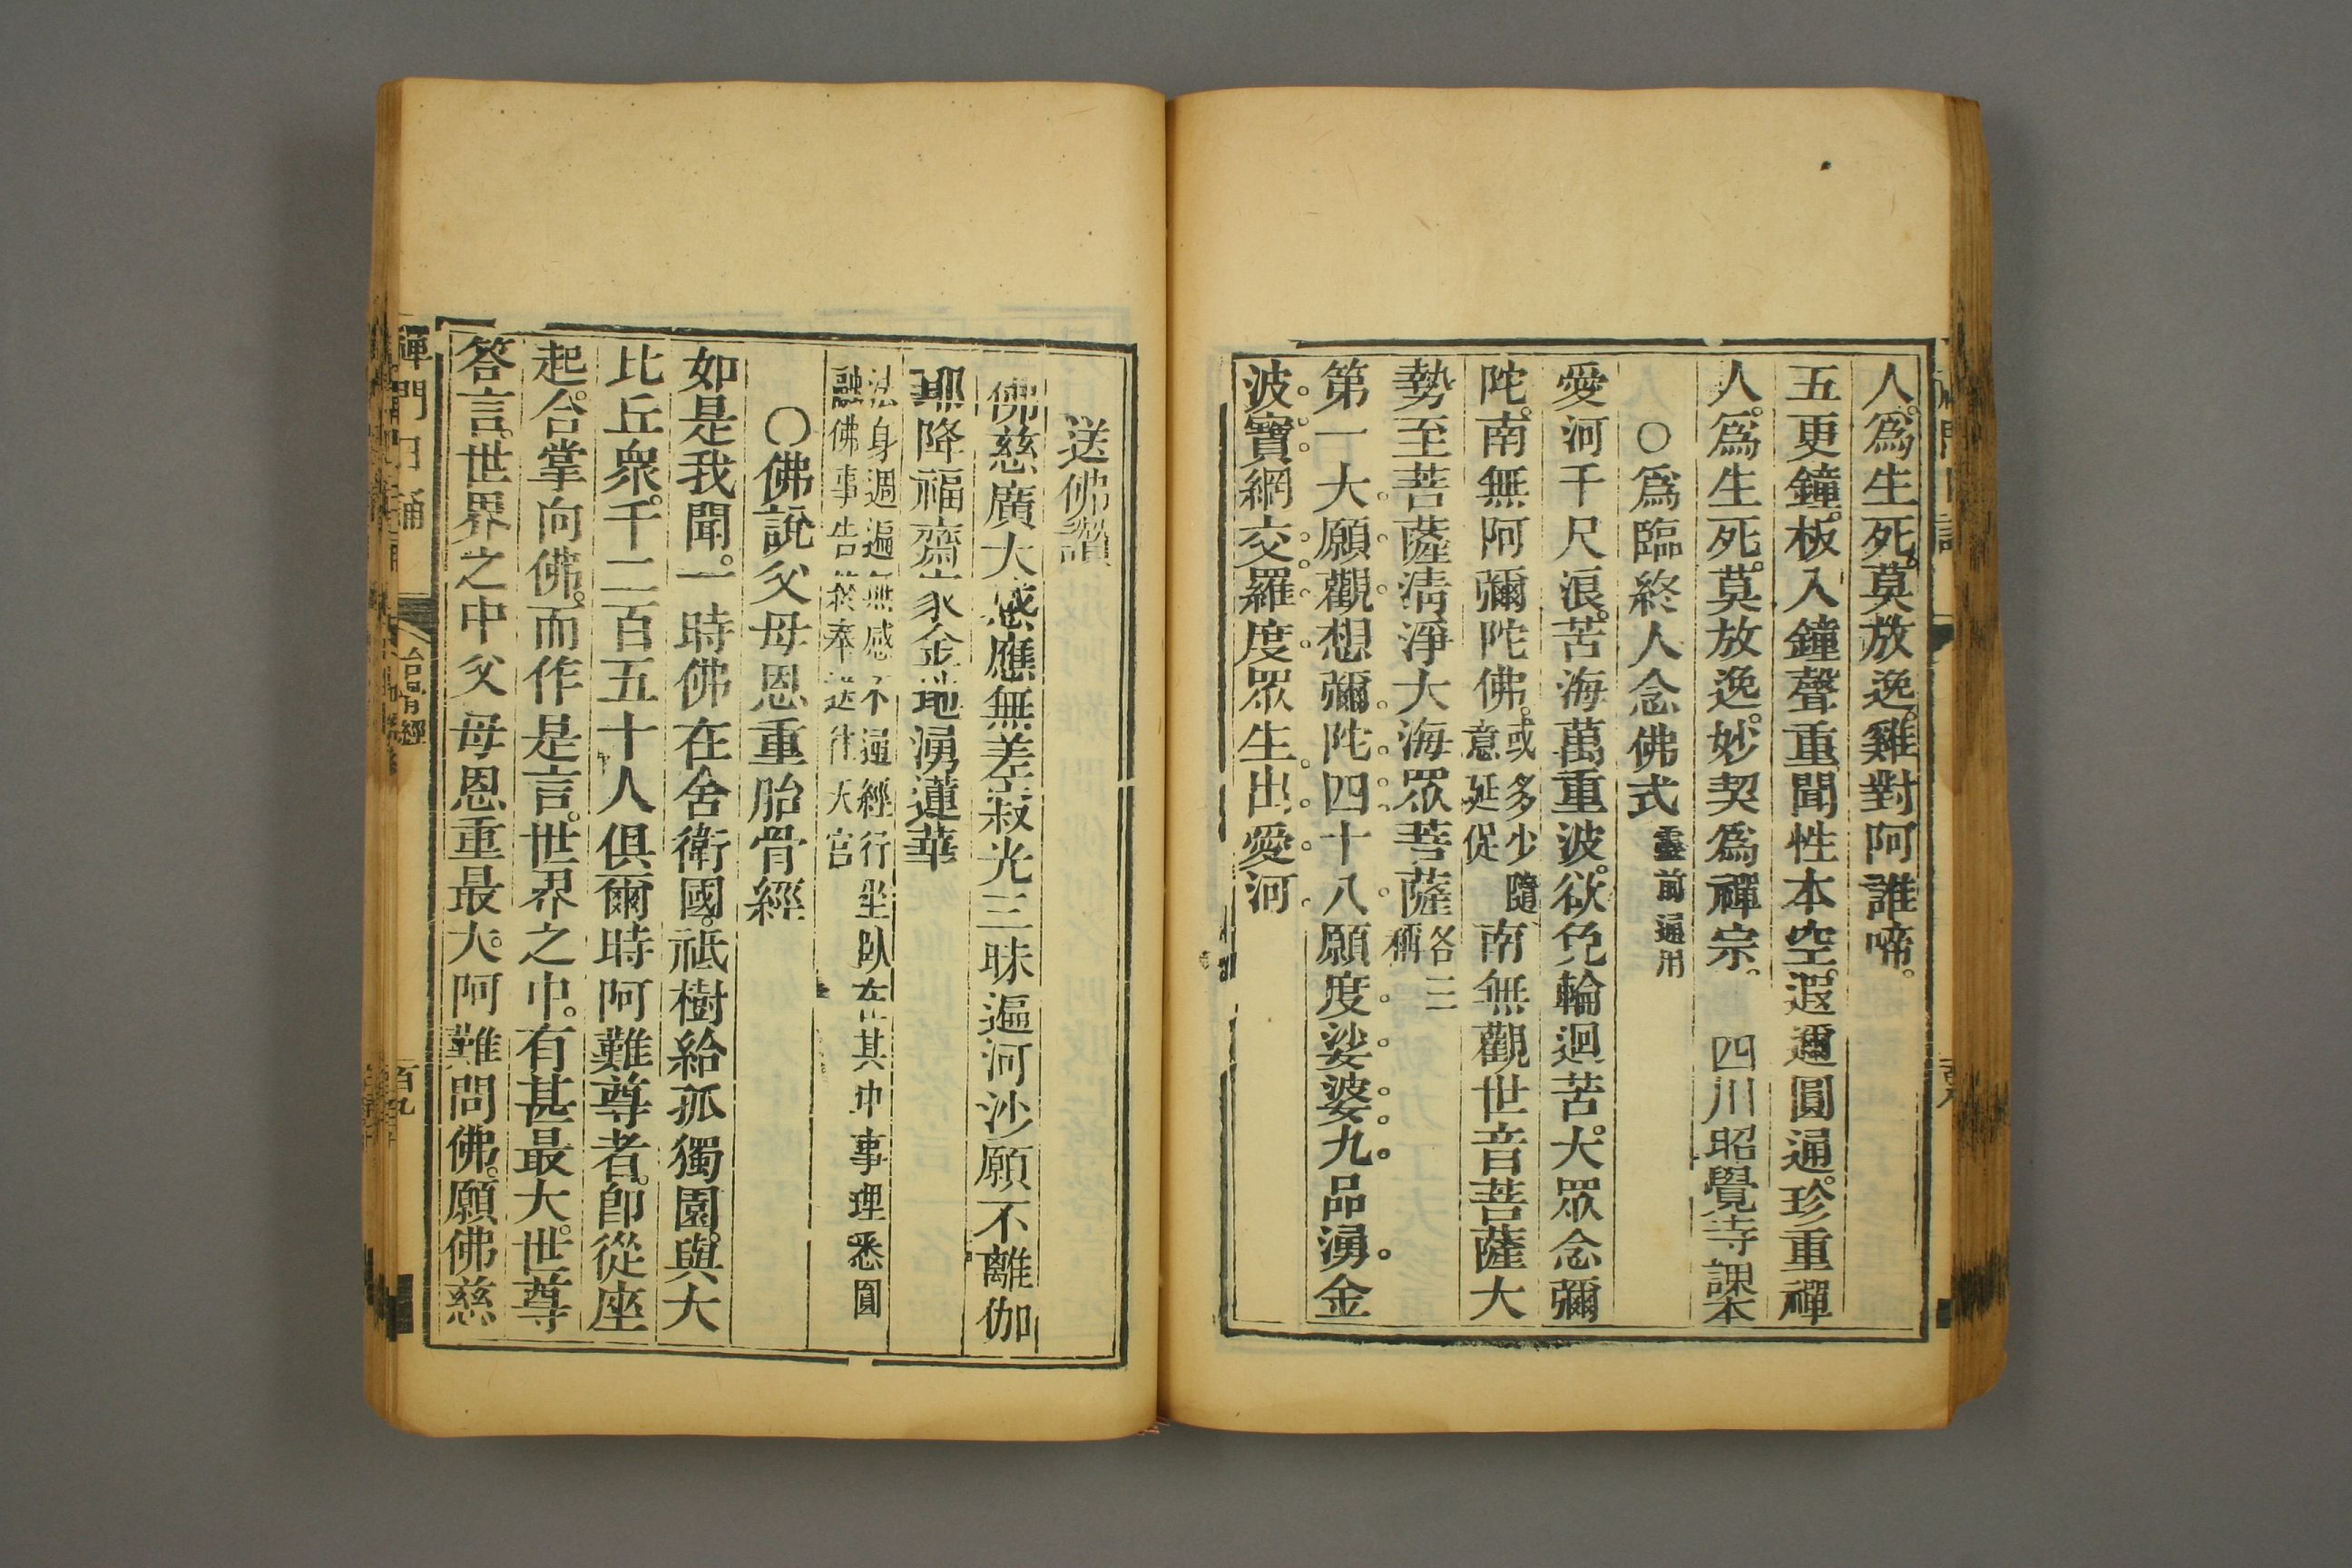 人。爲生死。莫放逸。雞對阿誰啼。
五更鐘。板入鐘聲重。聞性本空。遐邇圓通。珍重禪
人。爲生死。莫放逸。妙契爲禪宗。 四川昭覺寺課本
〇爲臨終人念佛式 靈前通用
愛河千尺浪。苦海萬重波。欲免輪迴苦。大眾念彌
陀。南無阿彌陀佛。或多少隨意延促 南無觀世音菩薩大
勢至菩薩清淨大海眾菩薩 各三稱
第一大願觀想彌陀四十八願度娑婆九品湧金
波寶網交羅度眾生出愛河
送佛讚
佛慈廣大感應無差寂光三昧遍河沙願不離伽
耶降福齋家金地湧蓮華
法身週遍無感不通經行坐臥在其中事理悉圓
融佛事告終奉送往天宮
〇佛說父母恩重胎骨經
如是我聞。一時佛在舍衛國。祇樹給孤獨園。與大
比丘衆。千二百五十人俱爾時阿難尊者。卽從座
起。合掌向佛。而作是言。世界之中。有甚最大。世尊
答言。世界之中父母恩重最大。阿難問佛。願佛慈
禪門日誦
胎骨經
百九